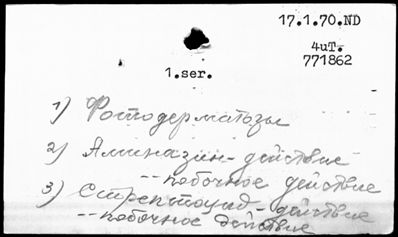 17.1.70.ND
4uT.
771862
1.ser.
1) Фотодерматозы
2) Аминазин - действие
-- побочное действие
3) Стрептоцид - действие
-- побочное действие